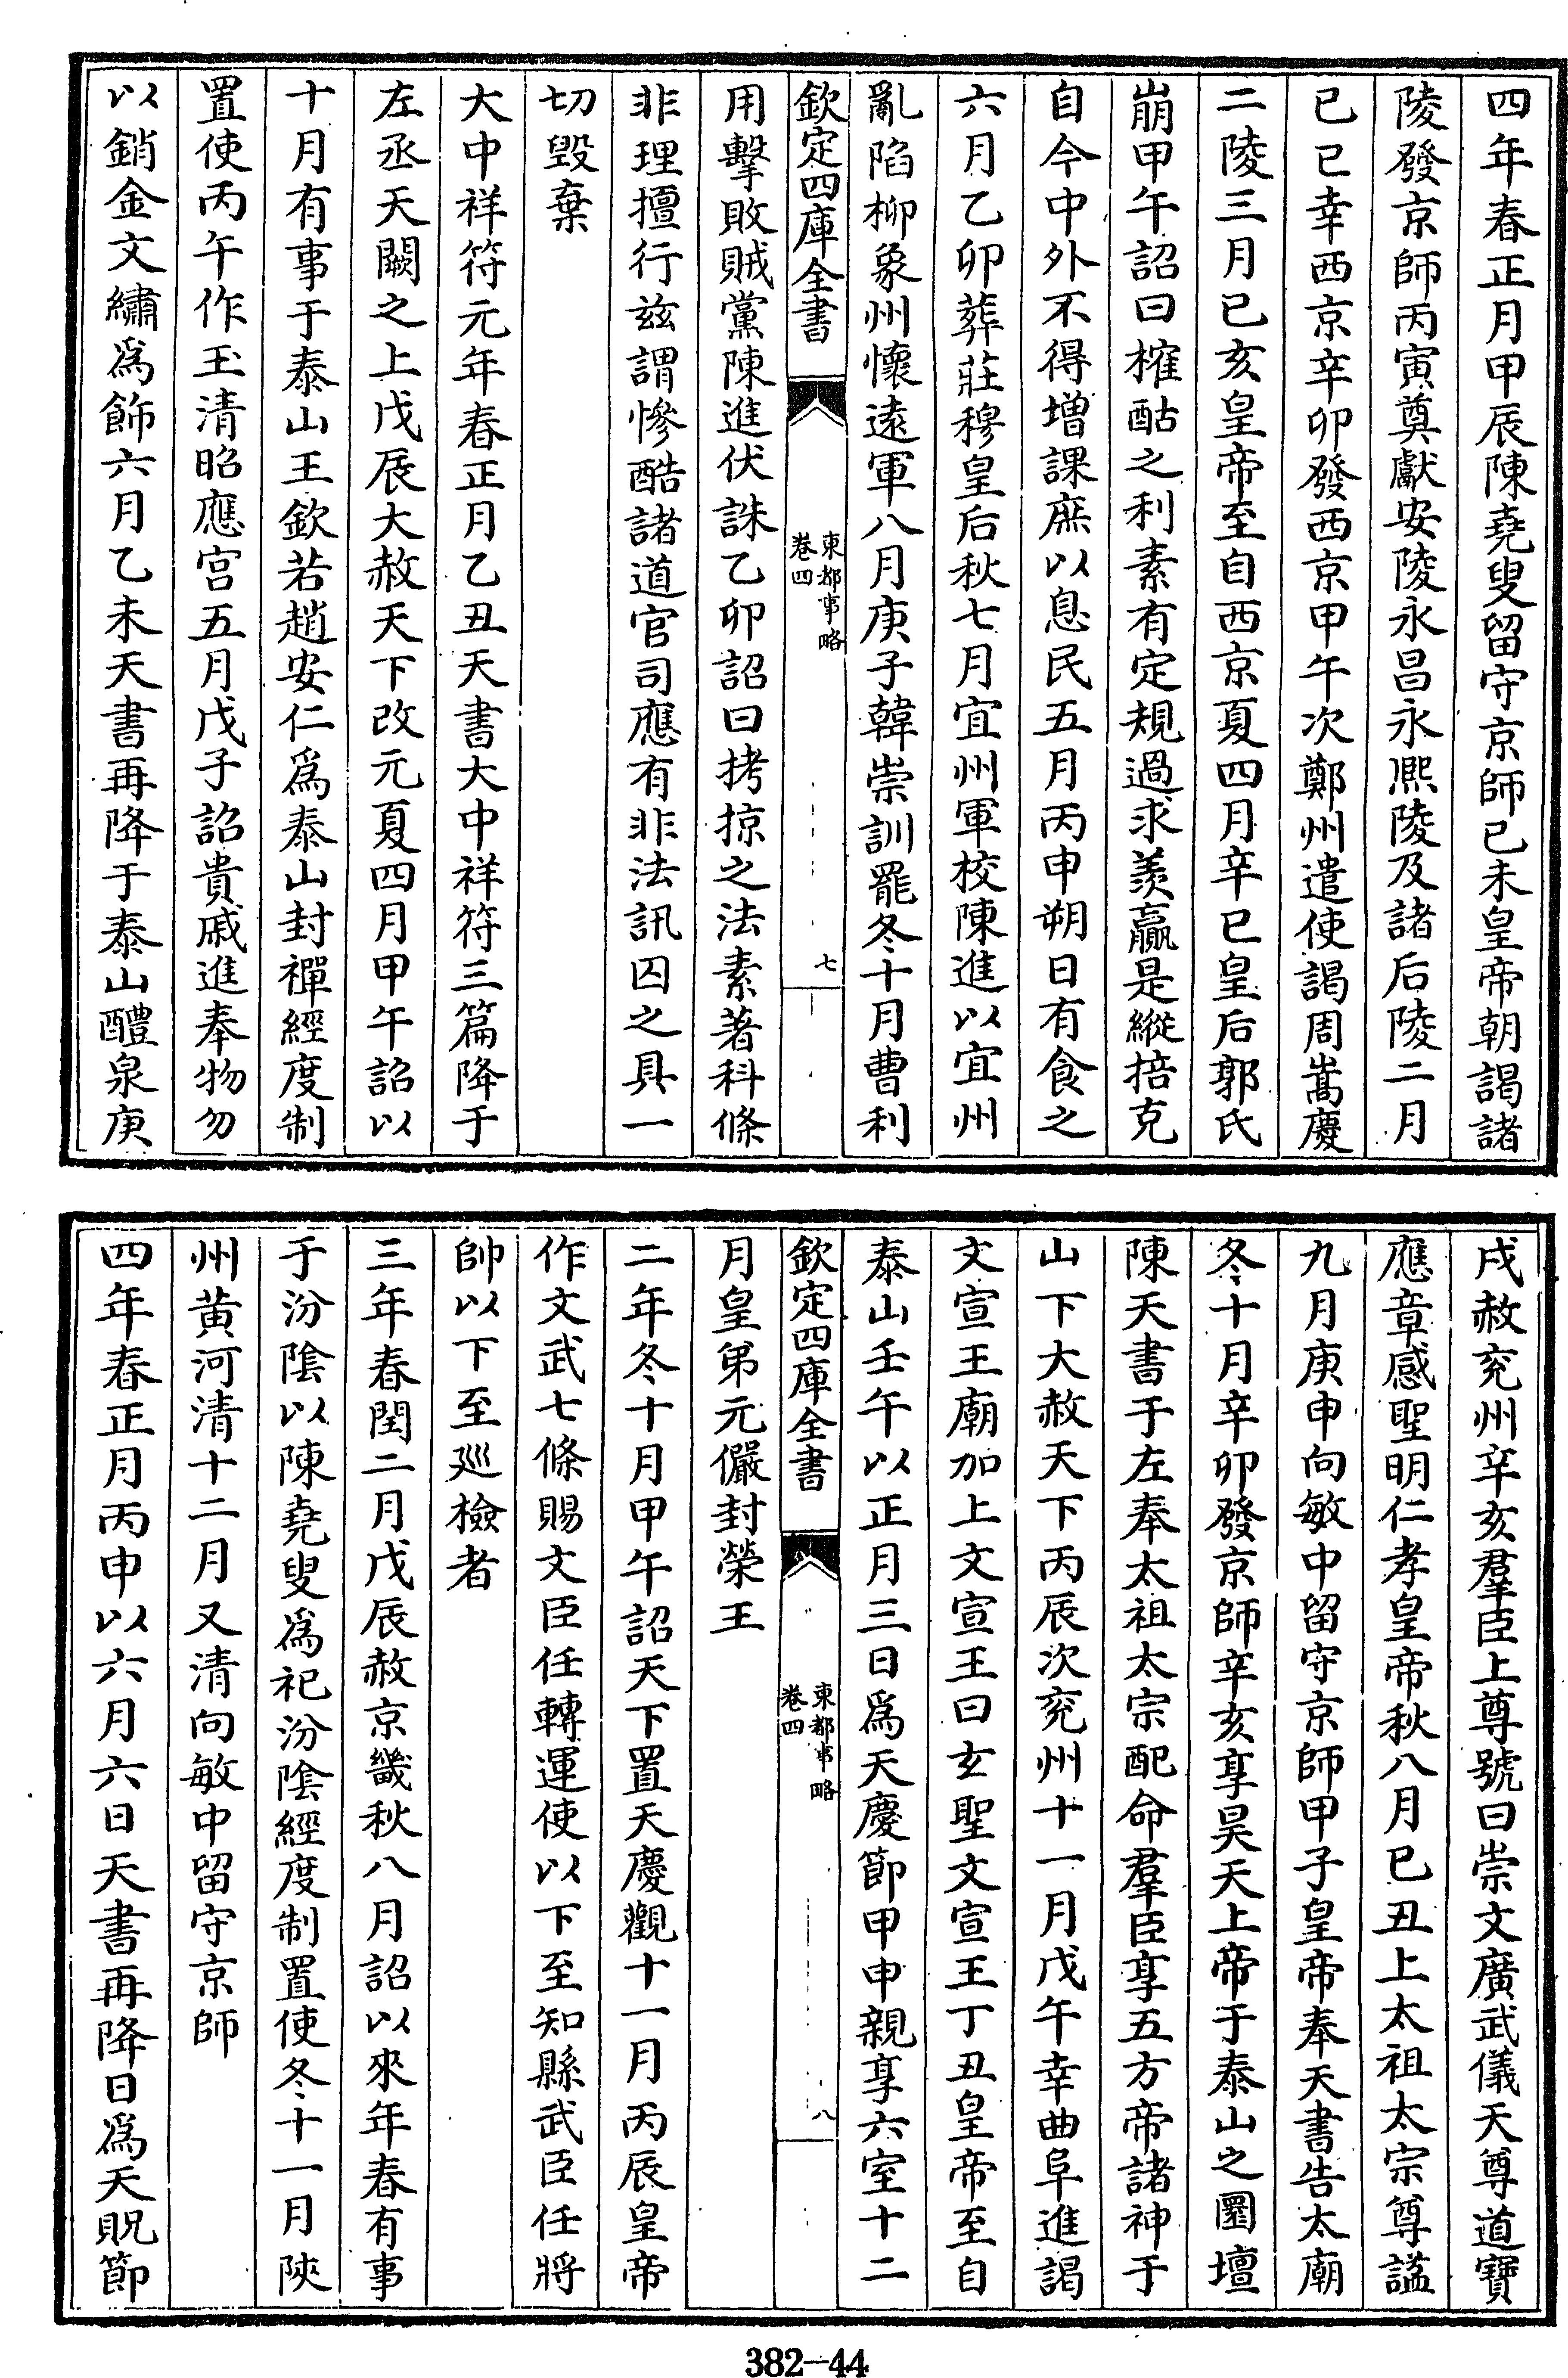 四年春正月甲辰陳堯叟留守京師已未皇帝朝謁諸
陵發京師丙寅奠獻安陵永昌永熈陵及諸后陵二月
已巳幸西京辛卯發西京甲午次鄭州遣使謁周嵩慶
二陵三月已亥皇帝至自西京夏四月辛巳皇后郭氏
崩甲午詔曰榷酤之利素有定規過求羨贏是縱掊克
自今中外不得增課庶以息民五月丙申朔日有食之
六月乙卯葬莊穆皇后秋七月宜州軍校陳進以宜州
亂陷柳象州懷遠軍八月庚子韓崇訓罷冬十月曹利
欽定四庫全書
東都事略
卷四
七
用擊敗賊黨陳進伏誅乙卯詔曰拷掠之法素著科條
非理擅行兹謂慘酷諸道官司應有非法訊囚之具一
切毁棄
大中祥符元年春正月乙丑天書大中祥符三篇降于
左丞天闕之上戊辰大赦天下改元夏四月甲午詔以
十月有事于泰山王欽若趙安仁為泰山封禪經度制
置使丙午作玉清昭應宫五月戊子詔貴戚進奉物勿
以銷金文繡為飾六月乙未天書再降于泰山醴泉庚
戌赦兖州辛亥羣臣上尊號曰崇文廣武儀天尊道寶
應章感聖明仁孝皇帝秋八月已丑上太祖太宗尊諡
九月庚申向敏中留守京師甲子皇帝奉天書告太廟
冬十月辛卯發京師辛亥享昊天上帝于泰山之圜壇
陳天書于左奉太祖太宗配命羣臣享五方帝諸神于
山下大赦天下丙辰次兖州十一月戊午幸曲阜進謁
文宣王廟加上文宣王曰玄聖文宣王丁丑皇帝至自
泰山壬午以正月三日為天慶節甲申親享六室十二
欽定四庫全書
東都事略
卷四
八
月皇弟元儼封榮王
二年冬十月甲午詔天下置天慶觀十一月丙辰皇帝
作文武七條賜文臣任轉運使以下至知縣武臣任將
帥以下至廵檢者
三年春閏二月戊辰赦京畿秋八月詔以來年春有事
于汾隂以陳堯叟為祀汾隂經度制置使冬十一月陜
州黄河清十二月又清向敏中留守京師
四年春正月丙申以六月六日天書再降日為天貺節
382-44